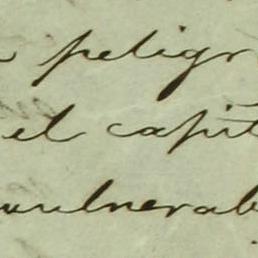 peligr
el capit
vulnerab